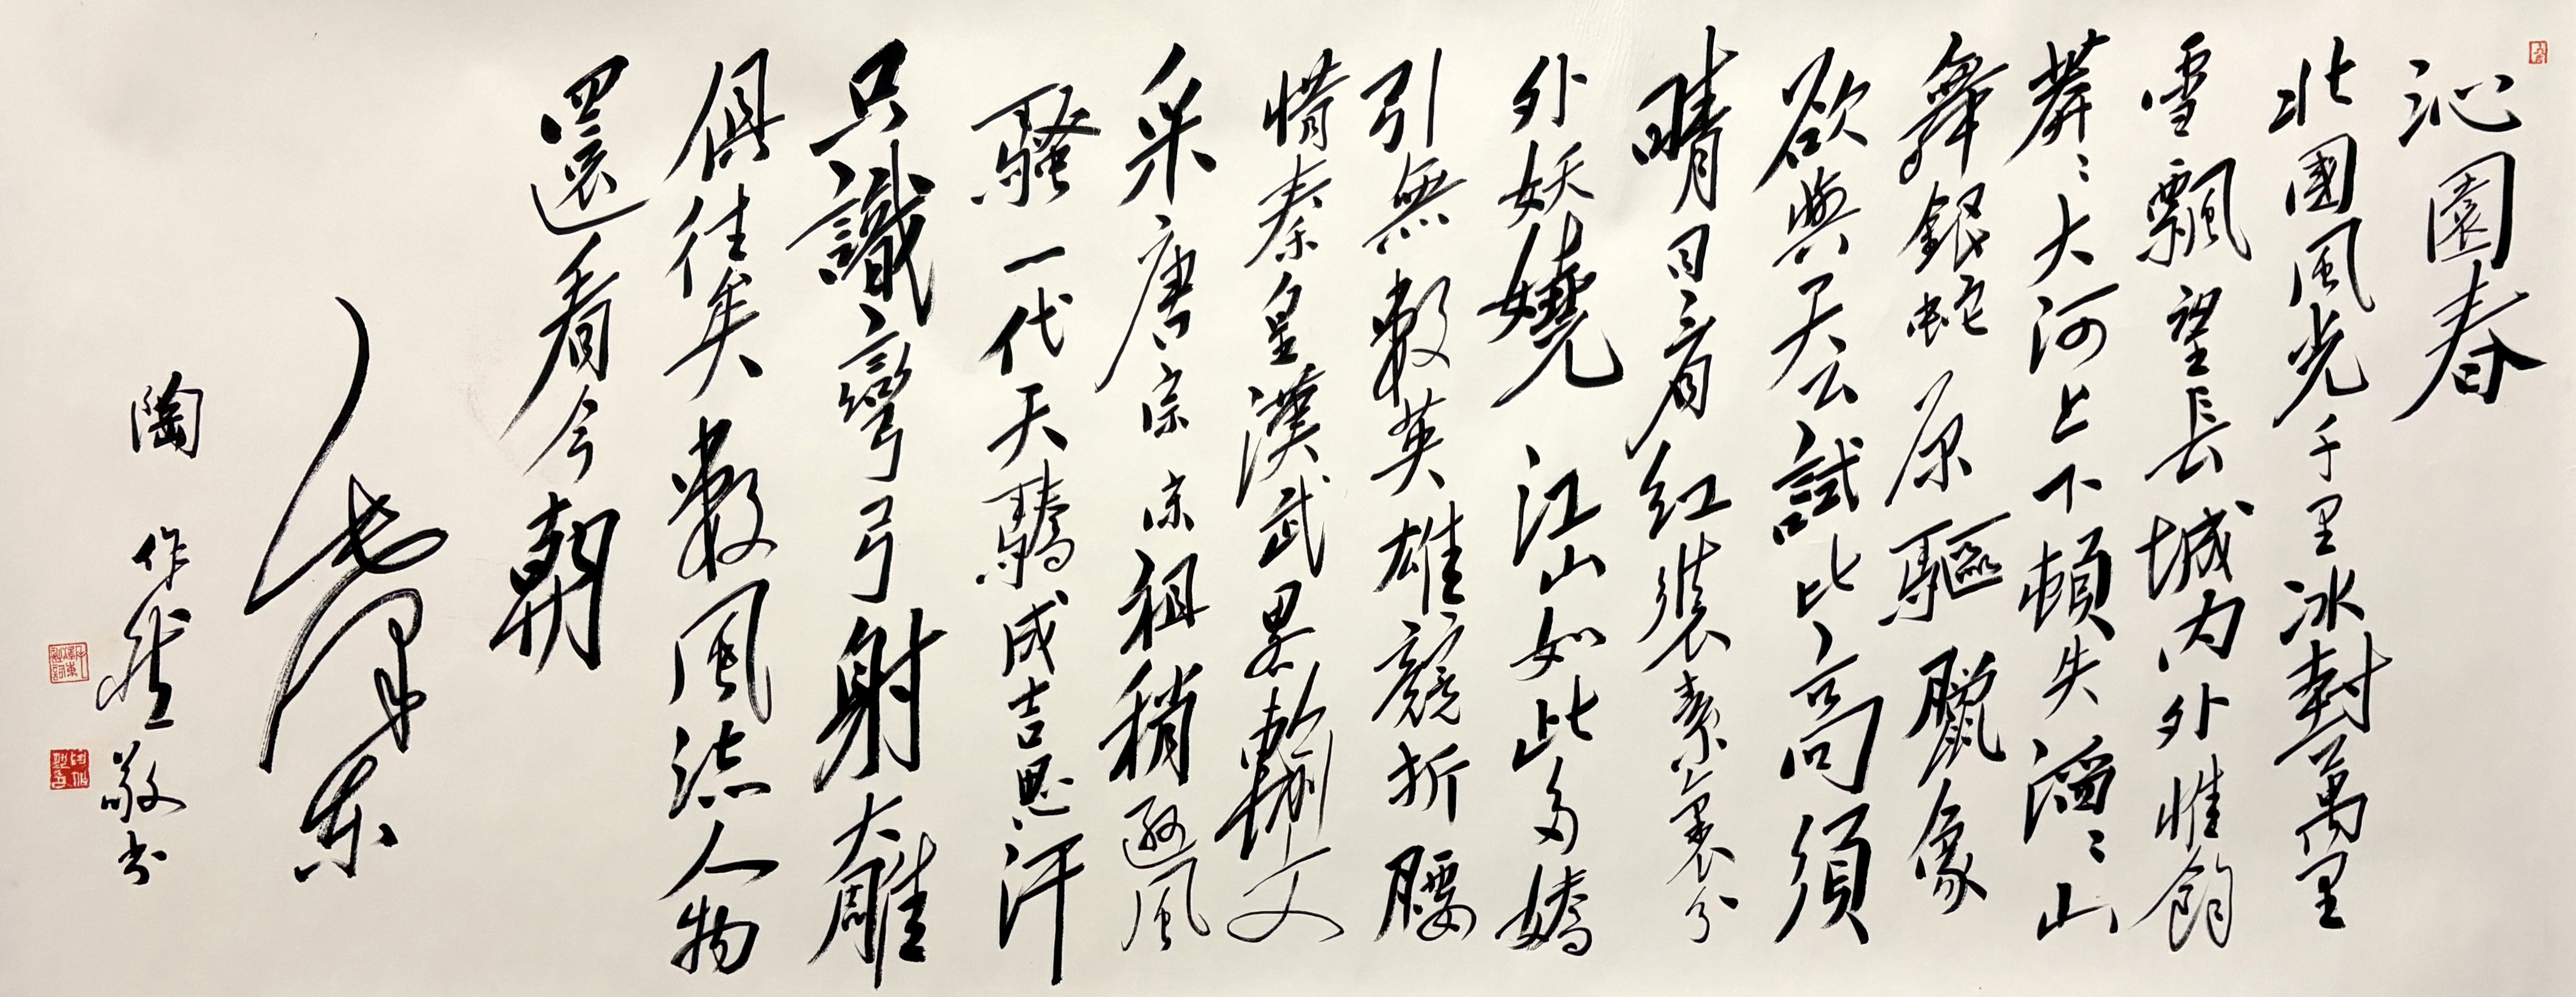 沁園春
北國風光千里冰封萬里
雪飄望長城内外惟餘
莽〻大河上下頓失滔〻山
舞銀蛇原驅臘象
欲與天公試比高須
晴日看紅裝素裹分
外妖嬈江山如此多嬌
引無數英雄競折腰
惜秦皇漢武畧輸文
采唐宗宋祖稍遜風
騷一代天驕成吉思汗
只識彎弓射大雕
俱往矣數風流人物
還看今朝
毛澤東
陶作敬书